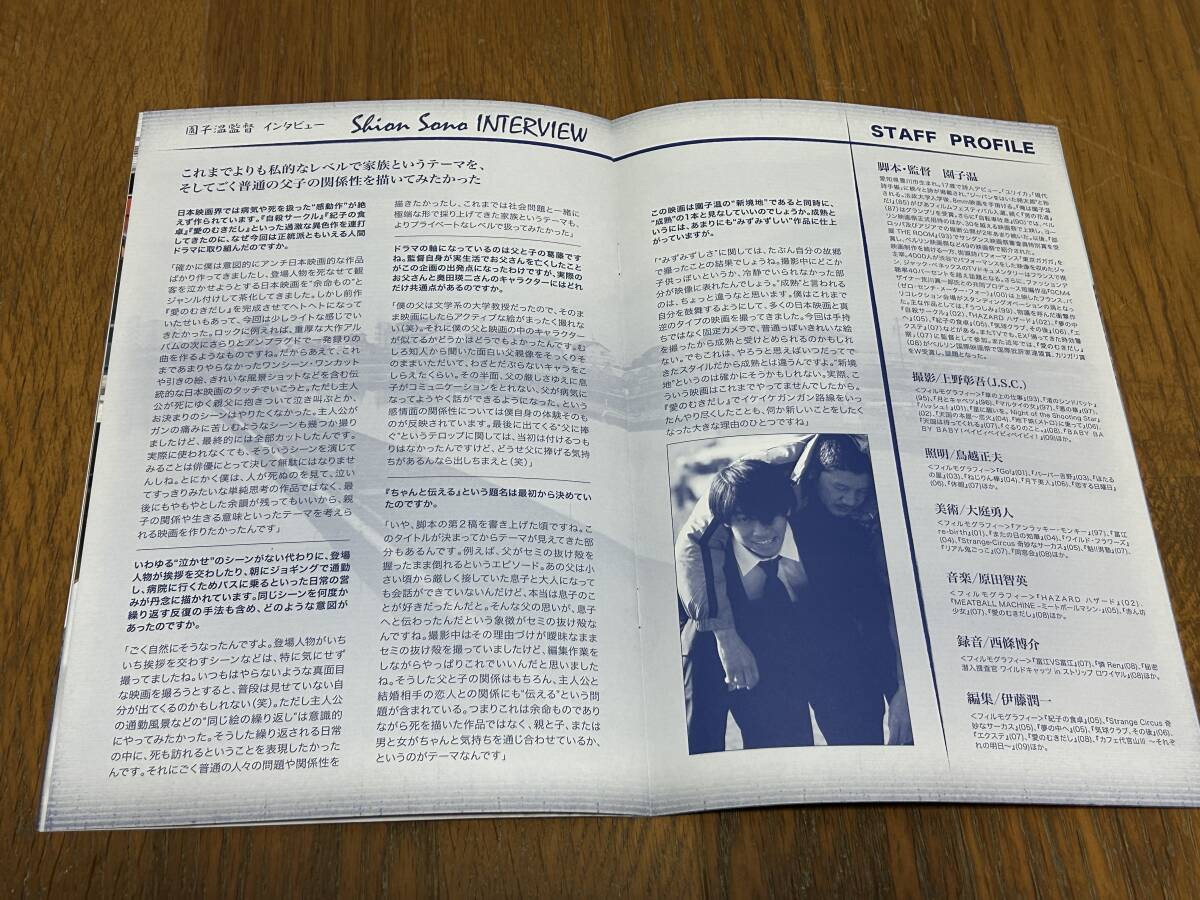 園子温監督 インタビュー
Shion Sono INTERVIEW
これまでよりも私的なレベルで家族というテーマを、
そしてごく普通の父子の関係性を描いてみたかった
日本映画界では病気や死を扱った“感動作”が絶
えず作られています。『自殺サークル』『紀子の食
卓』『愛のむきだし』といった過激な異色作を連打
してきたのに、なぜ今回は正統派ともいえる人間
ドラマに取り組んだのですか。
「確かに僕は意図的にアンチ日本映画的な作品
ばかり作ってきましたし、登場人物を死なせて観
客を泣かせようとする日本映画を“余命もの”と
ジャンル付けして茶化してきました。しかし前作
『愛のむきだし』を完成させてヘトヘトになって
いたせいもあって、今回は少しライトな感じでい
きたかった。ロックに例えれば、重厚な大作アル
バムの次にさらりとアンプラグドで一発録りの
曲を作るようなものですね。だからあえて、これ
まであまりやらなかったワンシーン・ワンカット
や引きの絵、きれいな風景ショットなどを含む伝
統的な日本映画のタッチでいこうと。ただし主人
公が死にゆく親父に抱きついて泣き叫ぶとか、
お決まりのシーンはやりたくなかった。主人公が
ガンの痛みに苦しむようなシーンも幾つか撮り
ましたけど、最終的には全部カットしたんです。
実際に使われなくても、そういうシーンを演じて
みることは俳優にとって決して無駄にはなりませ
んしね。とにかく僕は、人が死ぬのを見て、泣い
てすっきりみたいな単純思考の作品ではなく、最
後にもやもやとした余韻が残ってもいいから、親
子の関係や生きる意味といったテーマを考えら
れる映画を作りたかったんです」
いわゆる“泣かせ”のシーンがない代わりに、登場
人物が挨拶を交わしたり、朝にジョギングで通勤
し、病院に行くためバスに乗るといった日常の営
みが丹念に描かれています。同じシーンを何度か
繰り返す反復の手法も含め、どのような意図が
あったのですか。
「ごく自然にそうなったんですよ。登場人物がいち
いち挨拶を交わすシーンなどは、特に気にせず
撮ってました。いつもはやらないような真面目
な映画を撮ろうとすると、普段は見せていない自
分が出てくるのかもしれない(笑)。ただし主人公
の通勤風景などの“同じ絵の繰り返し”は意識的
にやってみたかった。そうした繰り返される日常
の中に、死も訪れるということを表現したかった
んです。それにごく普通の人々の問題や関係性を
描きたかったし、これまでは社会問題と一緒に
極端な形で採り上げてきた家族というテーマも、
よりプライベートなレベルで扱ってみたかった」
ドラマの軸になっているのは父と子の葛藤です
ね。監督自身が実生活でお父さんを亡くしたこと
がこの企画の出発点になったわけですが、実際の
お父さんと奥田瑛二さんのキャラクターにはどれ
だけ共通点があるのですか?
「僕の父は文学系の大学教授だったので、そのま
ま映画にしたらアクティブな絵がまったく撮れな
い(笑)。それに僕の父と映画の中のキャラクター
が似てるかどうかはどうでもよかったんです。む
しろ知人から聞いた面白い父親像をそっくりそ
のままいただいて、わざとだぶらないキャラをこ
しらえたくらい。その半面、父の厳しさゆえに息
子がコミュニケーションをとれない、父が病気に
なってようやく話ができるようになった、という
感情面の関係性については僕自身の体験そのも
のが反映されています。最後に出てくる“父に捧
ぐ”というテロップに関しては、当初は付けるつも
りはなかったんですけど、どうせ父に捧げる気持
ちがあるんなら出しちまえと(笑)」
『ちゃんと伝える』という題名は最初から決めてい
たのですか。
「いや、脚本の第2稿を書き上げた頃ですね。こ
のタイトルが決まってからテーマが見えてきた部
分もあるんです。例えば、父がセミの抜け殻を
握ったまま倒れるというエピソード。あの父は小
さい頃から厳しく接していた息子と大人になって
も会話ができていないんだけど、本当は息子のこ
とが好きだったんだと。そんな父の思いが、息子
へと伝わったんだという象徴がセミの抜け殻な
んですね。撮影中はその理由づけが曖昧なまま
セミの抜け殻を撮っていましたけど、編集作業を
しながらやっぱりこれでいいんだと思いました
ね。そうした父と子の関係はもちろん、主人公と
結婚相手の恋人との関係にも“伝える”という問
題が含まれている。つまりこれは余命ものであり
ながら死を描いた作品ではなく、親と子、または
男と女がちゃんと気持ちを通じ合わせているか、
というのがテーマなんです」
この映画は園子温の“新境地”であると同時に、
“成熟”の1本と見なしていいのでしょうか。成熟と
いうには、あまりにも“みずみずしい”作品に仕上
がっていますが。
「“みずみずしさ”に関しては、たぶん自分の故郷
で撮ったことの結果でしょうね。撮影中にどこか
子供っぽいというか、冷静でいられなかった部
分が映像に表れたんでしょう。“成熟”と言われる
のは、ちょっと違うなと思います。僕はこれまで
自分を鼓舞するようにして、多くの日本映画と真
逆のタイプの映画を撮ってきました。今回は手持
ちではなく固定カメラで、普通っぽいきれいな絵
を撮ったから成熟と受けとめられるのかもしれ
ない。でもこれは、やろうと思えばいつだってで
きたスタイルだから成熟とは違うんですよ。“新境
地”というのは確かにそうかもしれない。実際、こ
ういう映画はこれまでやってませんでしたから。
『愛のむきだし』でイケイケガンガン路線をいっ
たんやり尽くしたことも、何か新しいことをしたく
なった大きな理由のひとつですね」
STAFF PROFILE
脚本・監督 園子温
撮影/上野彰吾(J.S.C.)
照明/鳥越正夫
<フィルモグラフィー>『Go!』(01)、『バーバー吉野』(03)、『ほたる
の星』(03)、『ねじりん棒』(04)、『月下美人』(06)、『恋する日曜日』
(06)、『休暇』(07)ほか。
美術/大庭勇人
<フィルモグラフィー>『アンラッキー・モンキー』(97)、『富江
re-birth』(01)、『またの日の知華』(04)、『ワイルド・フラワーズ』
(04)、『Strange-Circus 奇妙なサーカス』(05)、『魁!!男塾』(07)、
『リアル鬼ごっこ』(07)、『同窓会』(08)ほか。
音楽/原田智英
<フィルモグラフィー>『HAZARD ハザード』(02)、
『MEATBALL MACHINE -ミートボールマシン-』(05)、『赤んぼ
少女』(07)、『愛のむきだし』(08)ほか。
録音/西條博介
<フィルモグラフィー>『富江VS富江』(07)、『憐 Ren』(08)、『秘密
潜入捜査官 ワイルドキャッツ in ストリップ ロワイヤル』(08)ほか。
編集/伊藤潤一
<フィルモグラフィー>『紀子の食卓』(05)、『Strange Circus 奇
妙なサーカス』(05)、『夢の中へ』(05)、『気球クラブ、その後』(06)、
『エクステ』(07)、『愛のむきだし』(08)、『カフェ代官山III ～それぞ
れの明日～』(09)ほか。